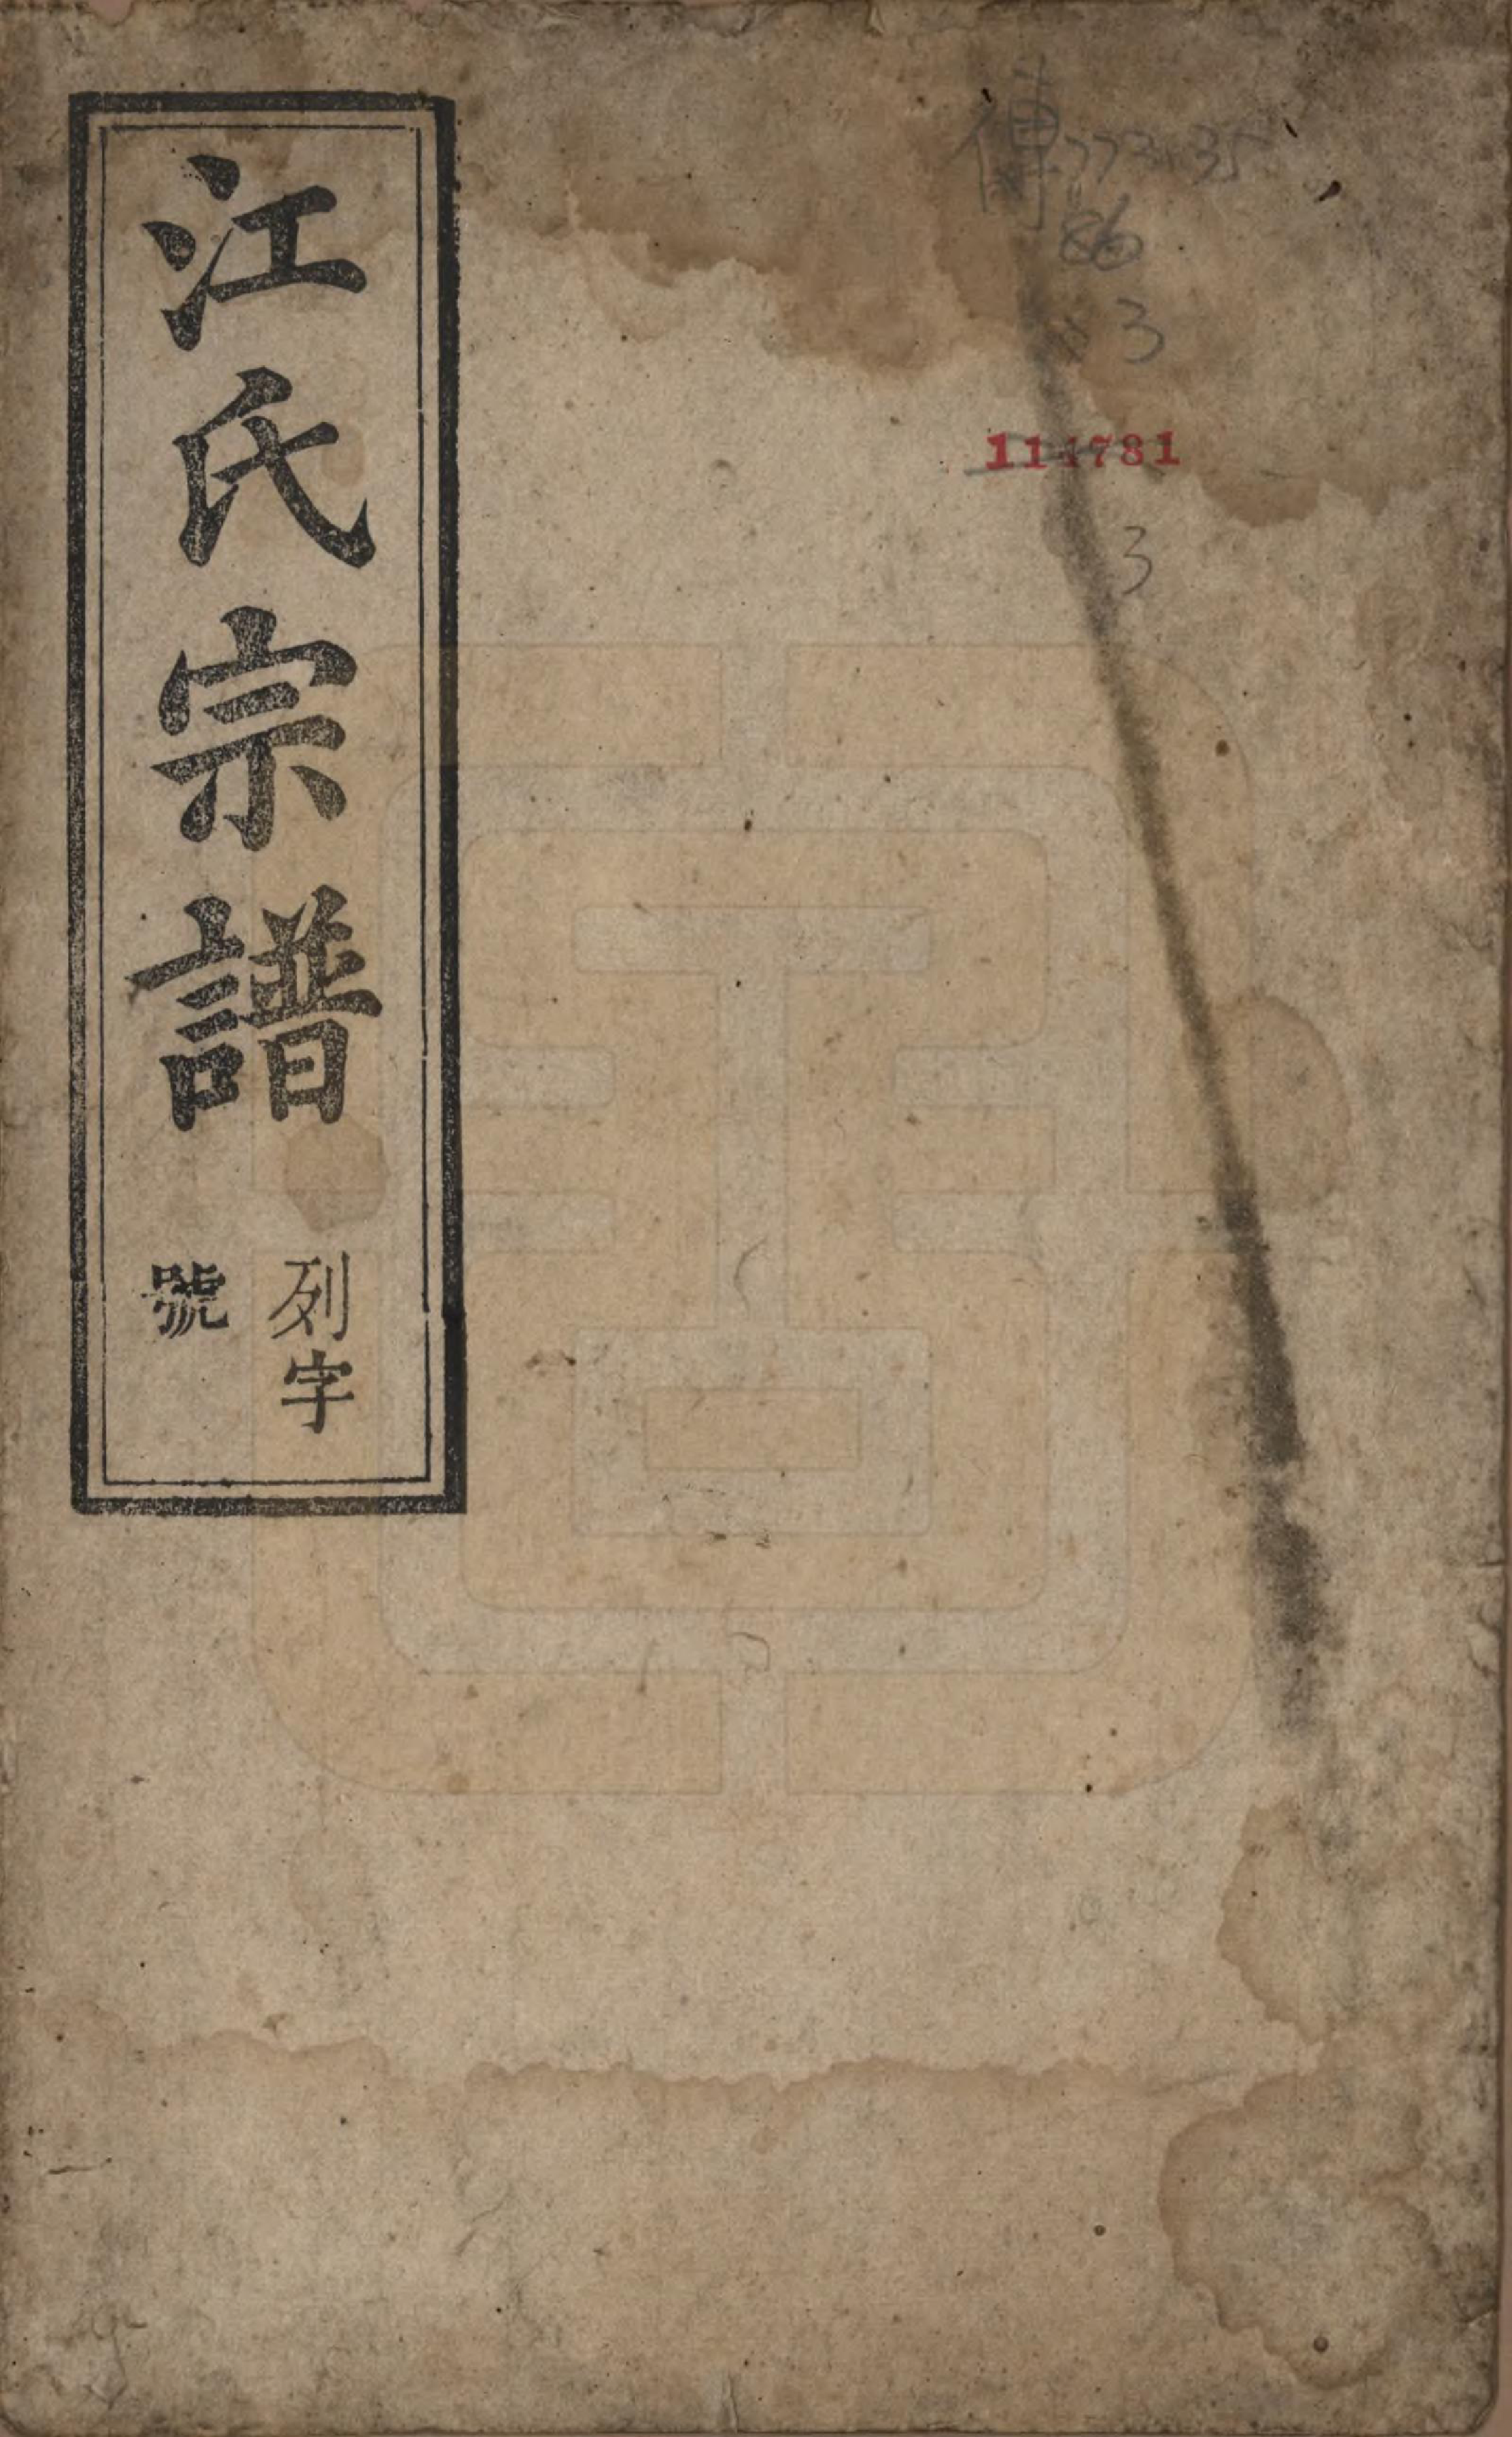 江氏宗譜
列字
號
傳773.35
86
:3
114781
3